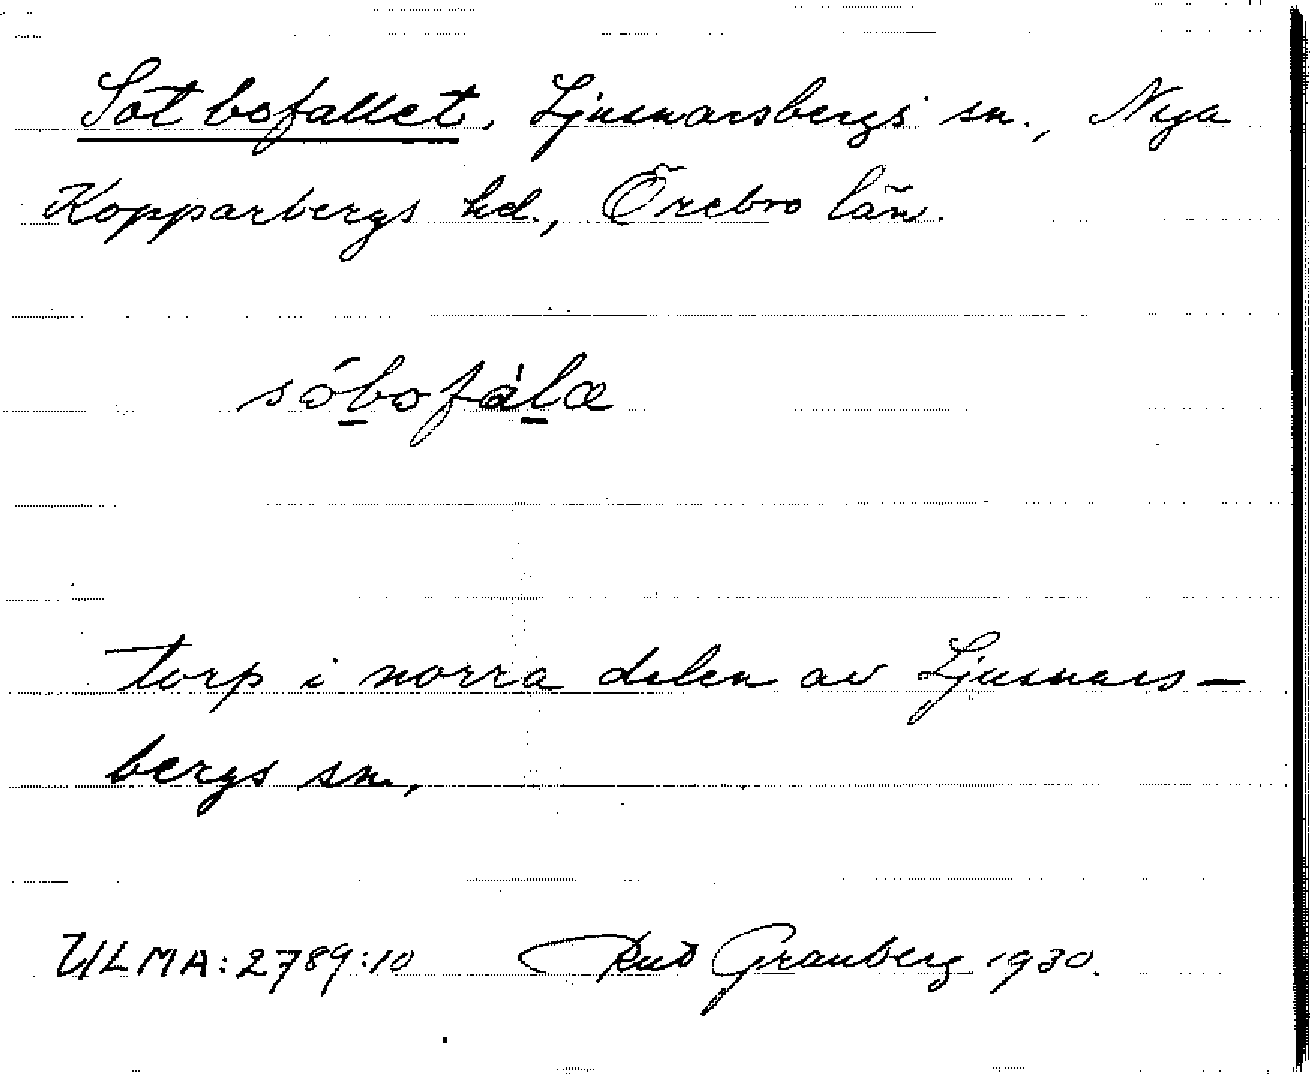 Sotbofallet, Ljusnarsbergs sn., Nya
Kopparbergs hd., Örebro län.
sóbofàla
torp i norra delen av Ljusnars-
bergs sn.,
ULMA:2789:10 Rut Granberg 1930.